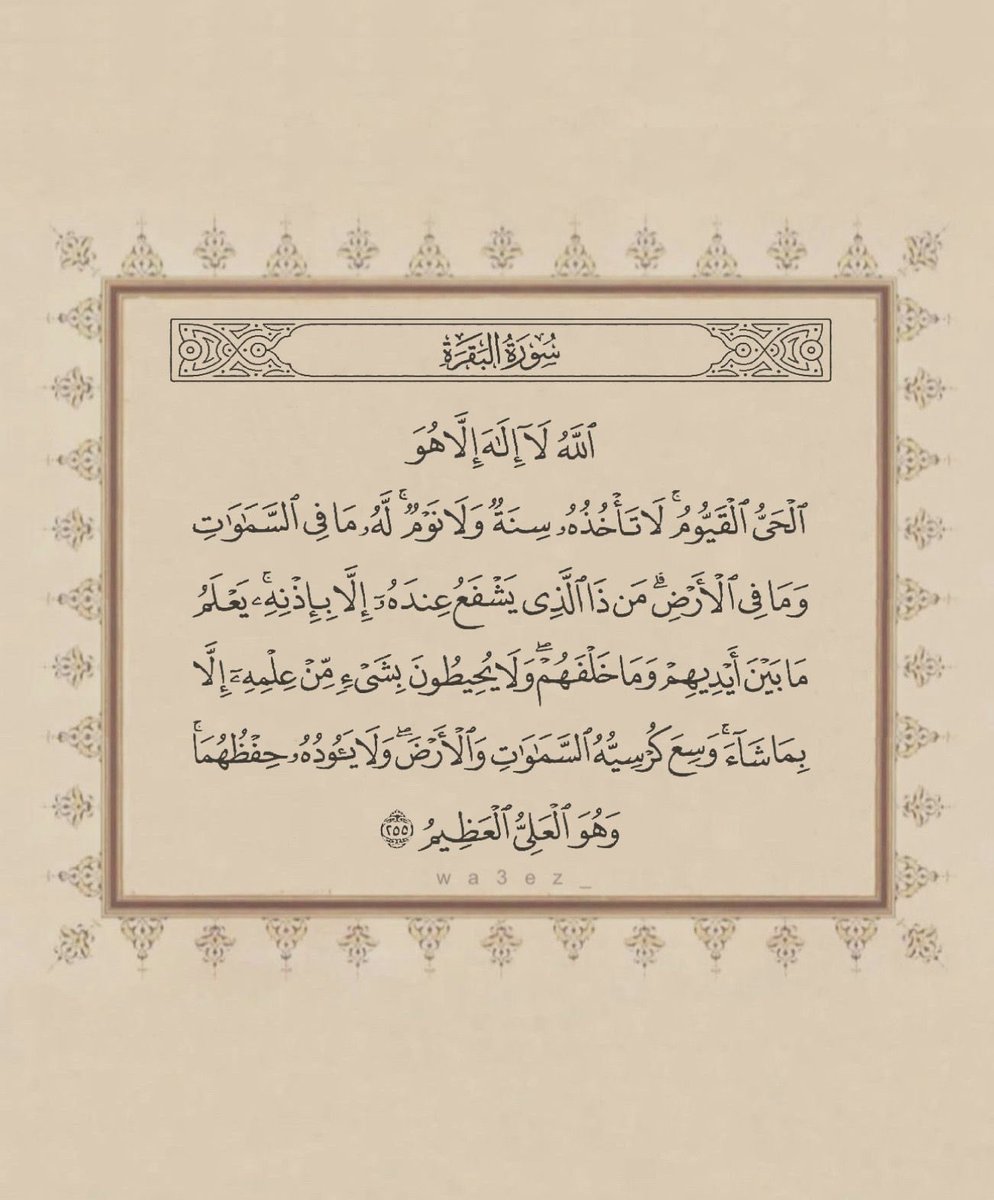 سُورَةُ البَقَرَةِ
ٱللَّهُ لَآ إِلَـٰهَ إِلَّا هُوَ
ٱلْحَىُّ ٱلْقَيُّومُ ۚ لَا تَأْخُذُهُۥ سِنَةٌ وَلَا نَوْمٌ ۚ لَّهُۥ مَا فِى ٱلسَّمَـٰوَٰتِ
وَمَا فِى ٱلْأَرْضِ ۗ مَن ذَا ٱلَّذِى يَشْفَعُ عِندَهُۥٓ إِلَّا بِإِذْنِهِۦ ۚ يَعْلَمُ
مَا بَيْنَ أَيْدِيهِمْ وَمَا خَلْفَهُمْ ۖ وَلَا يُحِيطُونَ بِشَىْءٍ مِّنْ عِلْمِهِۦٓ إِلَّا
بِمَا شَآءَ ۚ وَسِعَ كُرْسِيُّهُ ٱلسَّمَـٰوَٰتِ وَٱلْأَرْضَ ۖ وَلَا يَـُٔودُهُۥ حِفْظُهُمَا ۚ
وَهُوَ ٱلْعَلِىُّ ٱلْعَظِيمُ ٢٥٥
wa3ez_